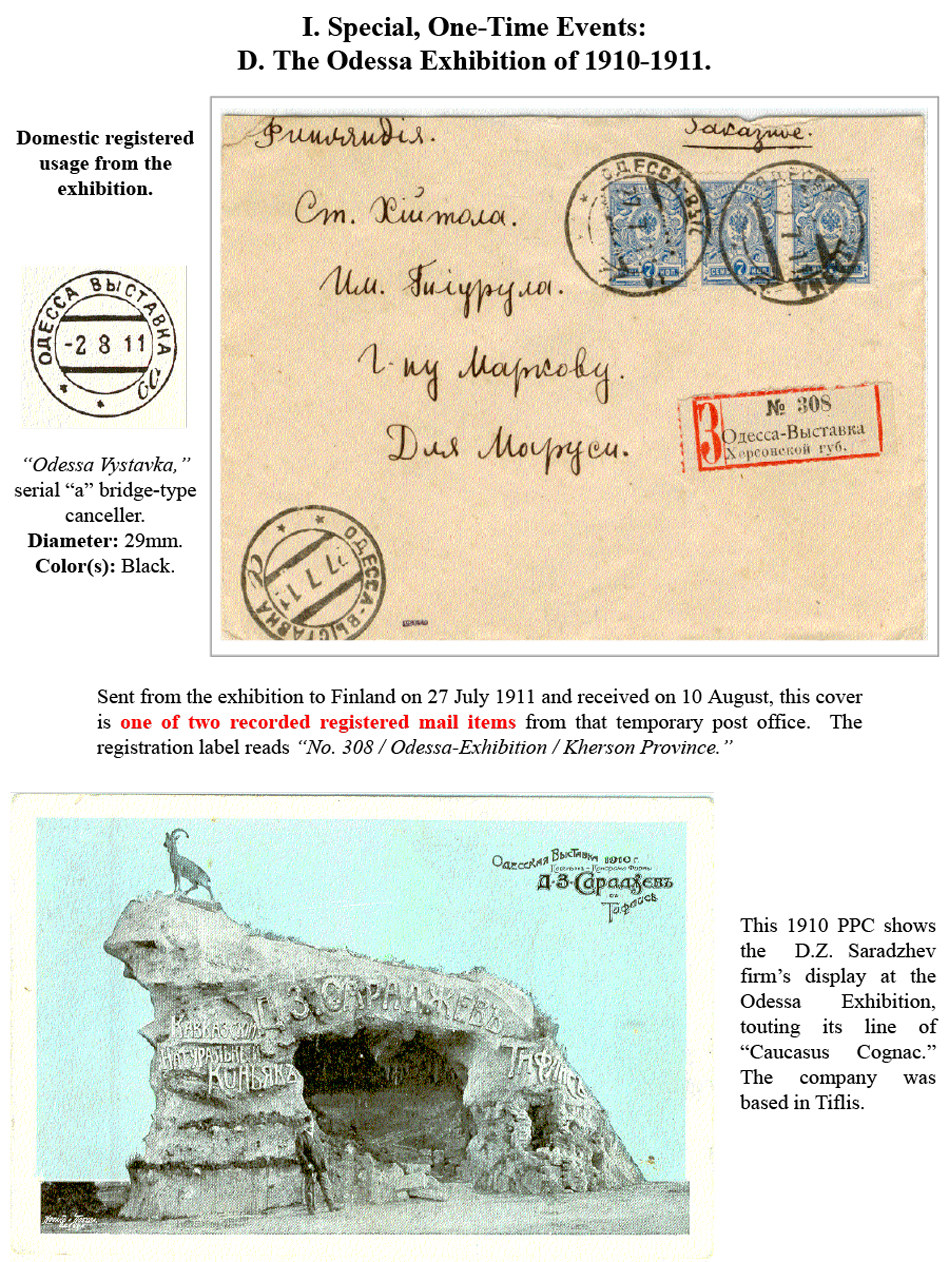 I. Special, One-Time Events:
D. The Odessa Exhibition of 1910-1911.
Domestic registered
usage from the
exhibition.
ОДЕССА ВЫСТАВКА
-2 8 11
а
“Odessa Vystavka,”
serial “a” bridge-type
canceller.
Diameter: 29mm.
Color(s): Black.
Финляндія.
Заказное.
Ст. Хійтола.
Им. Тигурула.
Г-ну Маркову.
Для Маруси.
ОДЕССА-ВЫС
ОДЕССА
7 КОП.
СЕМЬ 7 КОП.
№ 308
З Одесса-Выставка
Херсонской губ.
ОДЕССА-ВЫСТАВКА
27 7 11
Sent from the exhibition to Finland on 27 July 1911 and received on 10 August, this cover
is one of two recorded registered mail items from that temporary post office. The
registration label reads “No. 308 / Odessa-Exhibition / Kherson Province.”
Одесская Выставка 1910 г.
Д·З·Сараджевъ
въ
Тифлисѣ
Д. З. САРАДЖЕВЪ
КАВКАЗСКІЙ
НАТУРАЛЬНЫЙ
КОНЬЯКЪ
ТИФЛИСЪ
This 1910 PPC shows
the D.Z. Saradzhev
firm’s display at the
Odessa Exhibition,
touting its line of
“Caucasus Cognac.”
The company was
based in Tiflis.